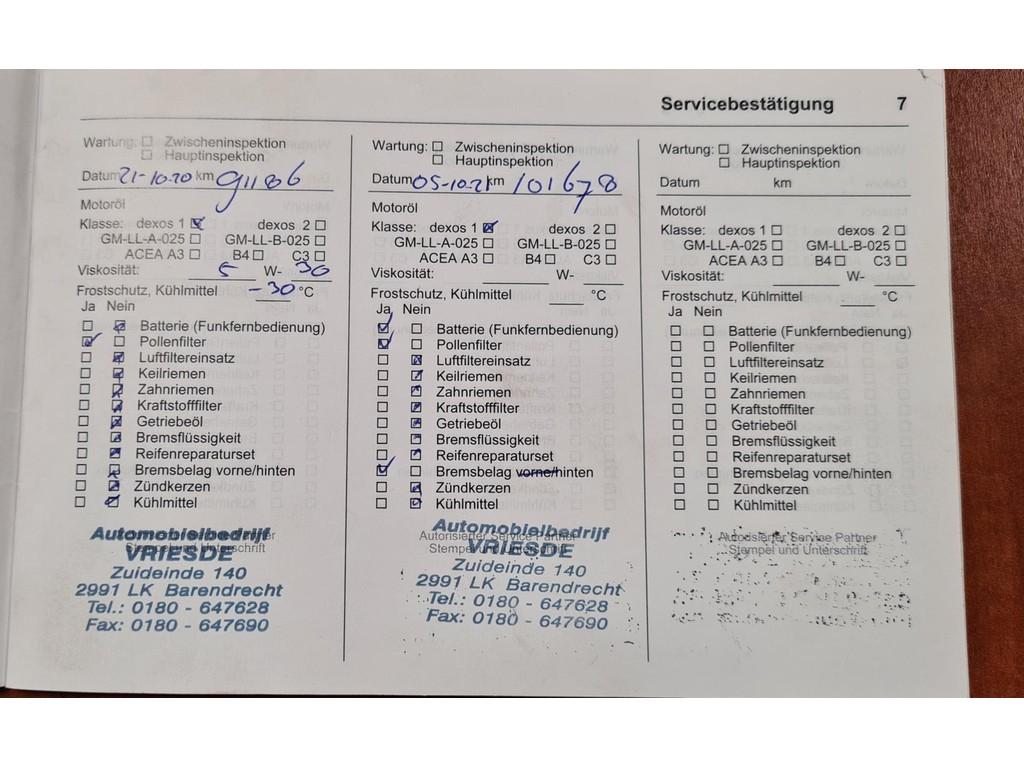 Servicebestätigung 7
Wartung: ☐ Zwischeninspektion
☐ Hauptinspektion
Datum 21-10-20 km 91186
Motoröl
Klasse: dexos 1 ☑ dexos 2 ☐
GM-LL-A-025 ☐ GM-LL-B-025 ☐
ACEA A3 ☐ B4 ☐ C3 ☐
Viskosität: 5 W- 30
Frostschutz, Kühlmittel -30 °C
Ja Nein
☐ ☑ Batterie (Funkfernbedienung)
☑ ☐ Pollenfilter
☐ ☑ Luftfiltereinsatz
☐ ☑ Keilriemen
☐ ☑ Zahnriemen
☐ ☑ Kraftstofffilter
☐ ☑ Getriebeöl
☐ ☑ Bremsflüssigkeit
☐ ☑ Reifenreparaturset
☐ ☑ Bremsbelag vorne/hinten
☐ ☑ Zündkerzen
☐ ☑ Kühlmittel
Autorisierter Service Partner
Stempel und Unterschrift
Automobielbedrijf
VRIESDE
Zuideinde 140
2991 LK Barendrecht
Tel.: 0180 - 647628
Fax: 0180 - 647690
Wartung: ☐ Zwischeninspektion
☐ Hauptinspektion
Datum 05-10-21 km 101678
Motoröl
Klasse: dexos 1 ☑ dexos 2 ☐
GM-LL-A-025 ☐ GM-LL-B-025 ☐
ACEA A3 ☐ B4 ☐ C3 ☐
Viskosität: W-
Frostschutz, Kühlmittel °C
Ja Nein
☑ ☐ Batterie (Funkfernbedienung)
☑ ☐ Pollenfilter
☐ ☑ Luftfiltereinsatz
☐ ☑ Keilriemen
☐ ☑ Zahnriemen
☐ ☑ Kraftstofffilter
☐ ☑ Getriebeöl
☐ ☑ Bremsflüssigkeit
☐ ☑ Reifenreparaturset
☑ ☐ Bremsbelag vorne/hinten
☐ ☑ Zündkerzen
☐ ☑ Kühlmittel
Autorisierter Service Partner
Stempel und Unterschrift
Automobielbedrijf
VRIESDE
Zuideinde 140
2991 LK Barendrecht
Tel.: 0180 - 647628
Fax: 0180 - 647690
Wartung: ☐ Zwischeninspektion
☐ Hauptinspektion
Datum km
Motoröl
Klasse: dexos 1 ☐ dexos 2 ☐
GM-LL-A-025 ☐ GM-LL-B-025 ☐
ACEA A3 ☐ B4 ☐ C3 ☐
Viskosität: W-
Frostschutz, Kühlmittel °C
Ja Nein
☐ ☐ Batterie (Funkfernbedienung)
☐ ☐ Pollenfilter
☐ ☐ Luftfiltereinsatz
☐ ☐ Keilriemen
☐ ☐ Zahnriemen
☐ ☐ Kraftstofffilter
☐ ☐ Getriebeöl
☐ ☐ Bremsflüssigkeit
☐ ☐ Reifenreparaturset
☐ ☐ Bremsbelag vorne/hinten
☐ ☐ Zündkerzen
☐ ☐ Kühlmittel
Autorisierter Service Partner
Stempel und Unterschrift